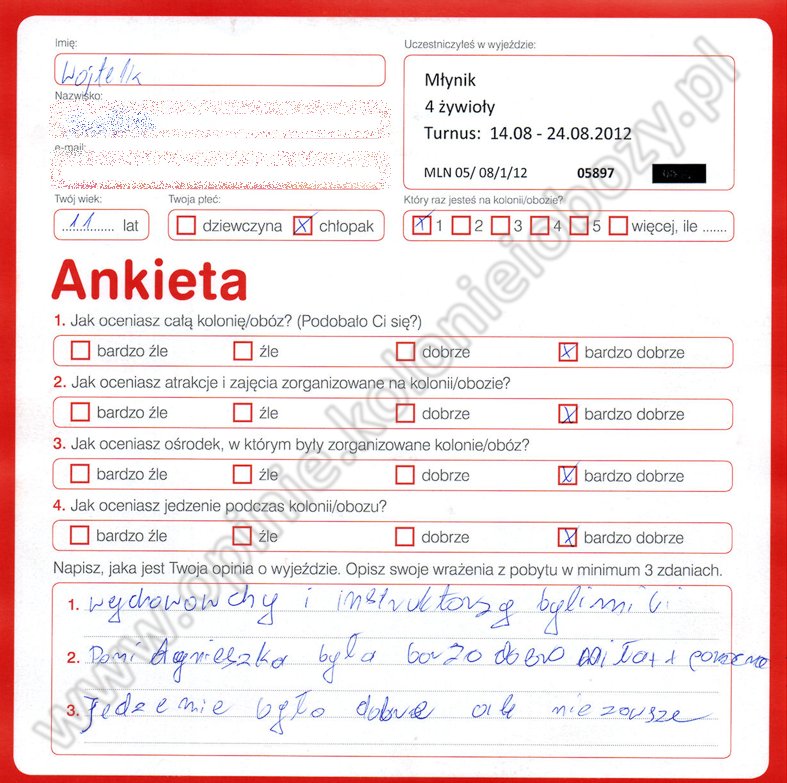 Imię:
Uczestniczyłeś w wyjeździe:
Wojtek
Młynik
4 żywioły
Turnus: 14.08 - 24.08.2012
MLN 05/ 08/1/12 05897
Nazwisko:
e-mail:
Twój wiek:
Twoja płeć:
Który raz jesteś na kolonii/obozie?
11 lat
dziewczyna X chłopak
X 1 2 3 4 5 więcej, ile .......
Ankieta
1. Jak oceniasz całą kolonię/obóz? (Podobało Ci się?)
bardzo źle źle dobrze X bardzo dobrze
2. Jak oceniasz atrakcje i zajęcia zorganizowane na kolonii/obozie?
bardzo źle źle dobrze X bardzo dobrze
3. Jak oceniasz ośrodek, w którym były zorganizowane kolonie/obóz?
bardzo źle źle dobrze X bardzo dobrze
4. Jak oceniasz jedzenie podczas kolonii/obozu?
bardzo źle źle dobrze X bardzo dobrze
Napisz, jaka jest Twoja opinia o wyjeździe. Opisz swoje wrażenia z pobytu w minimum 3 zdaniach.
1. wychowowchy i instruktorzy byli mili
2. Pani Agnieszka była
3. Jedzenie było dobre ale nie zawsze
www.opinie.kolonieiobozy.pl